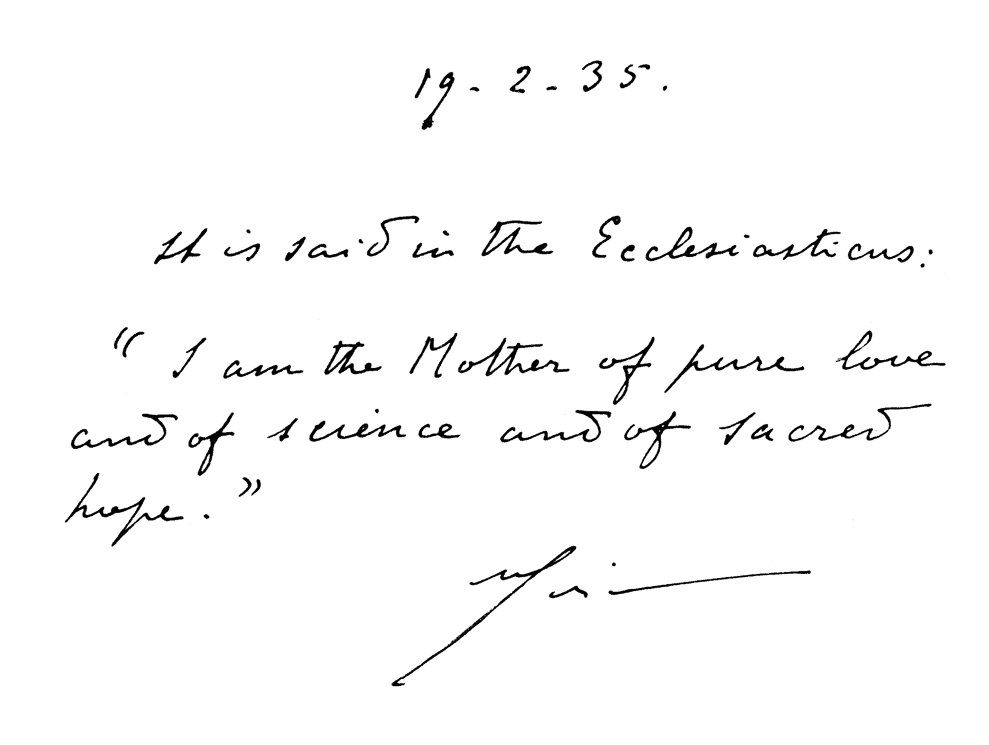 19-2-35.
It is said in the Ecclesiasticus:
"I am the Mother of pure love
and of science and of sacred
hope."